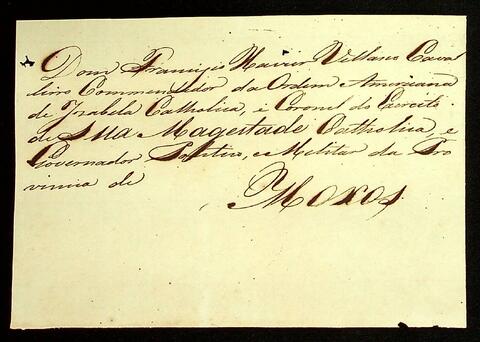 Dom Francisco Xavier Vellasco Caval
leiro Commendador da Ordem Americana
de Izabela Catholica, e Coronel do Exercito
de Sua Magestade Catholica, e
Governador Politico, e Militar da Pro
vincia de
Moxos